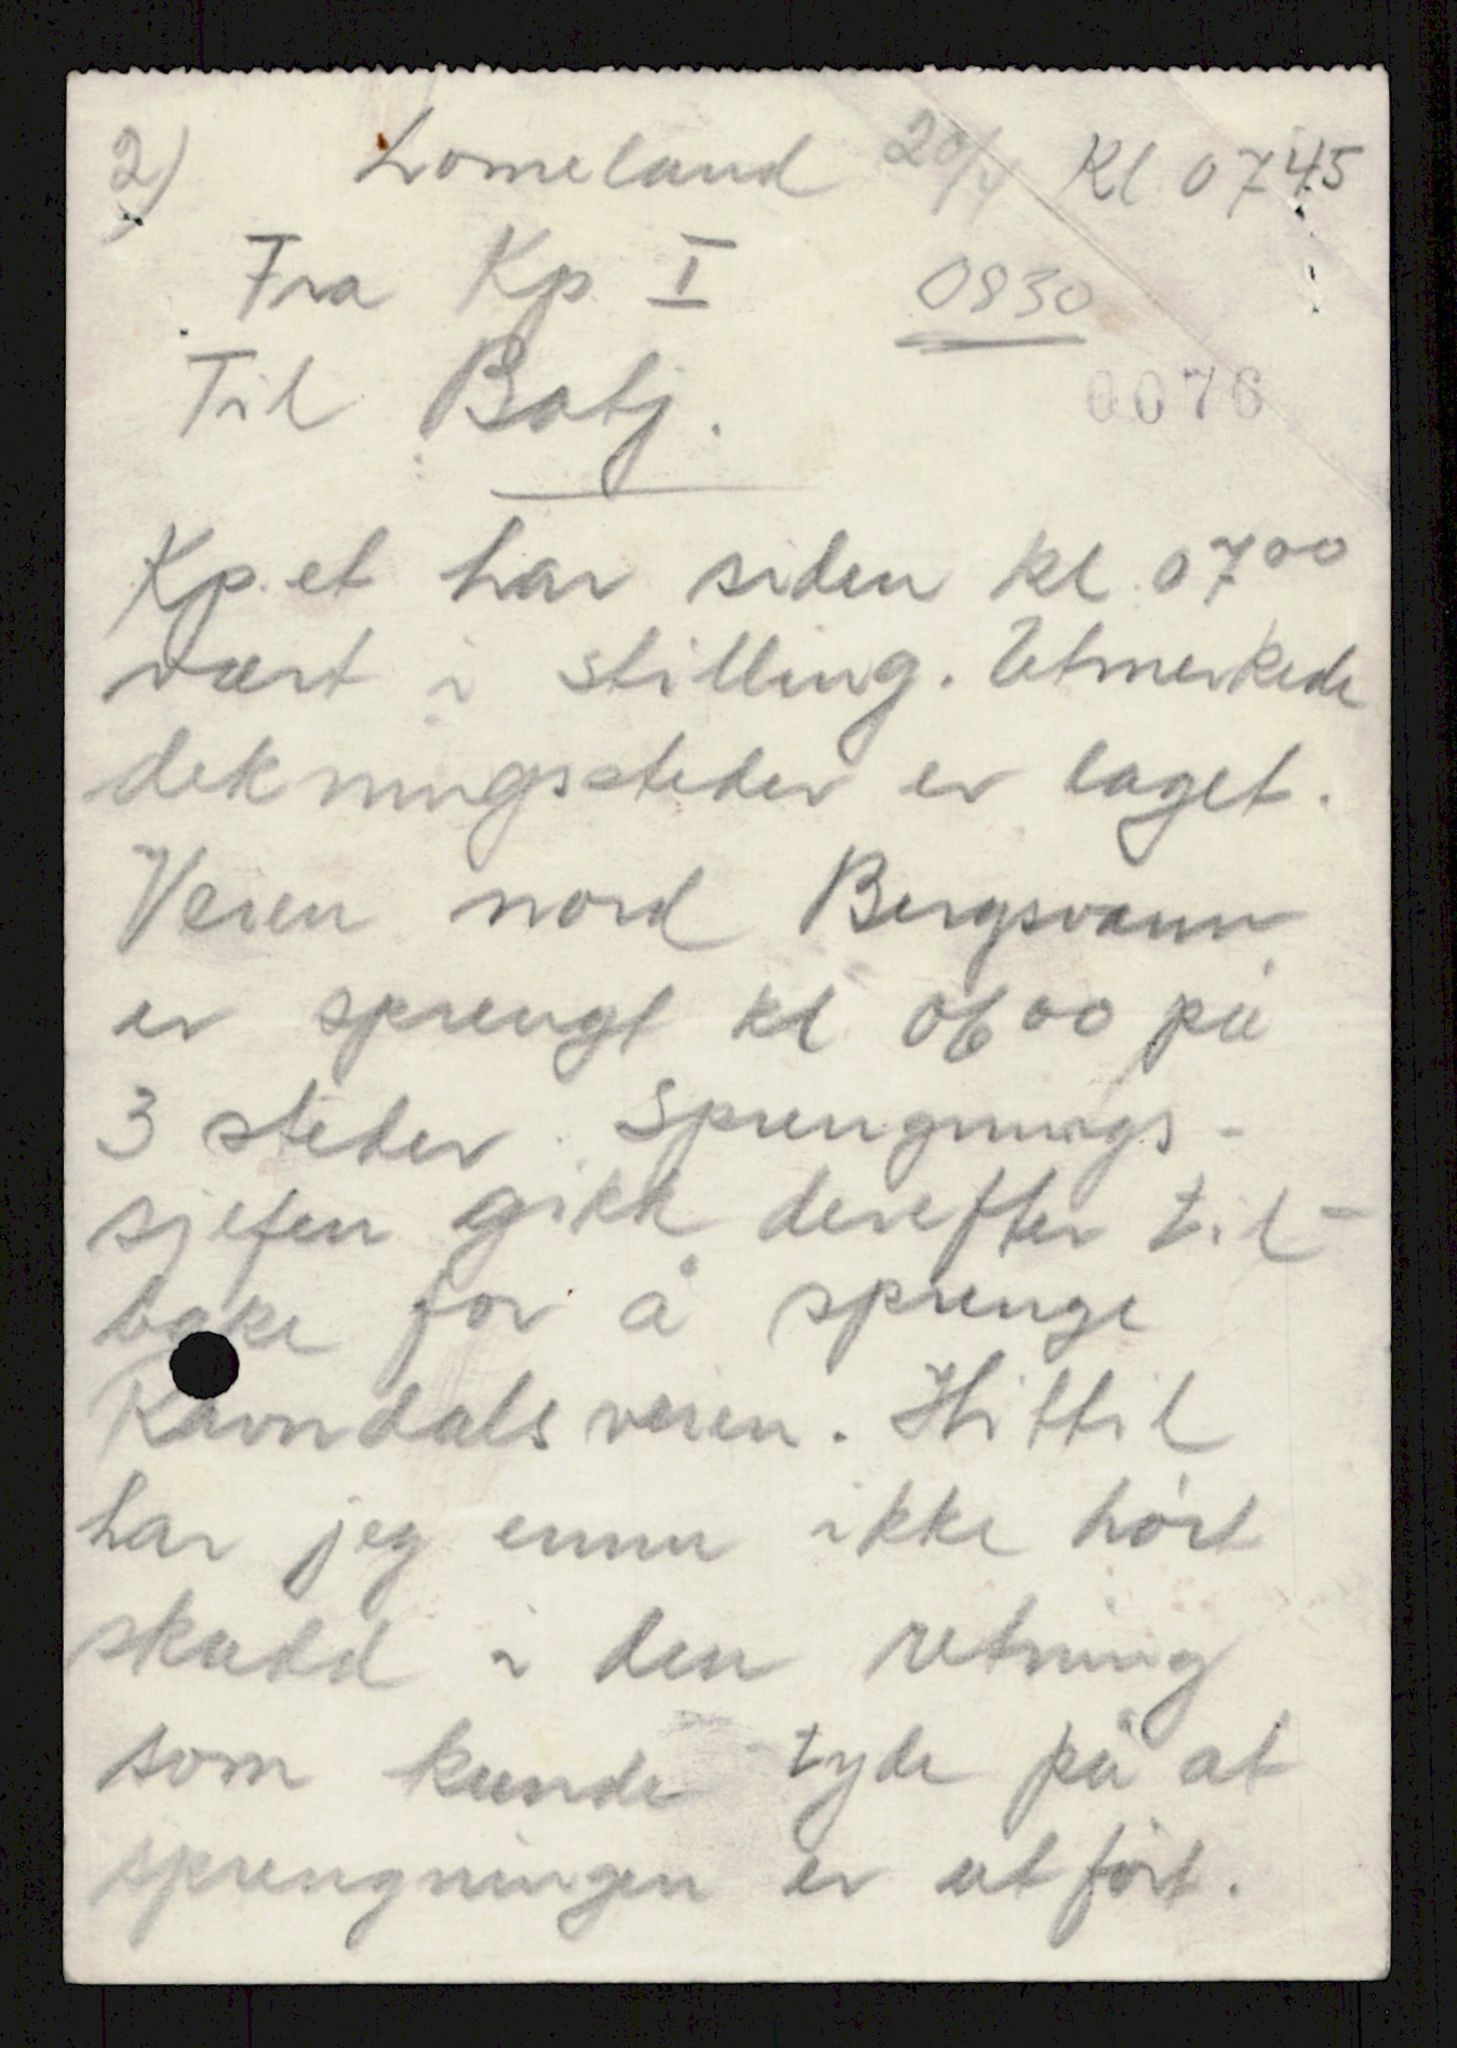 2) Lomeland 20/4 Kl 0745
Fra Kp I 0830
Til Batj.
0076
Kp.et har siden kl. 0700
vært i stilling. Utmerkede
dekningssteder er laget.
Veien nord Bergsvann
er sprengt kl 0600 på
3 steder. Sprengnings-
sjefen gikk derefter til-
bake for å sprenge
Ravndalsveien. Hittil
har jeg ennu ikke hört
skudd i den retning
som kunde tyde på at
sprengningen er utfört.